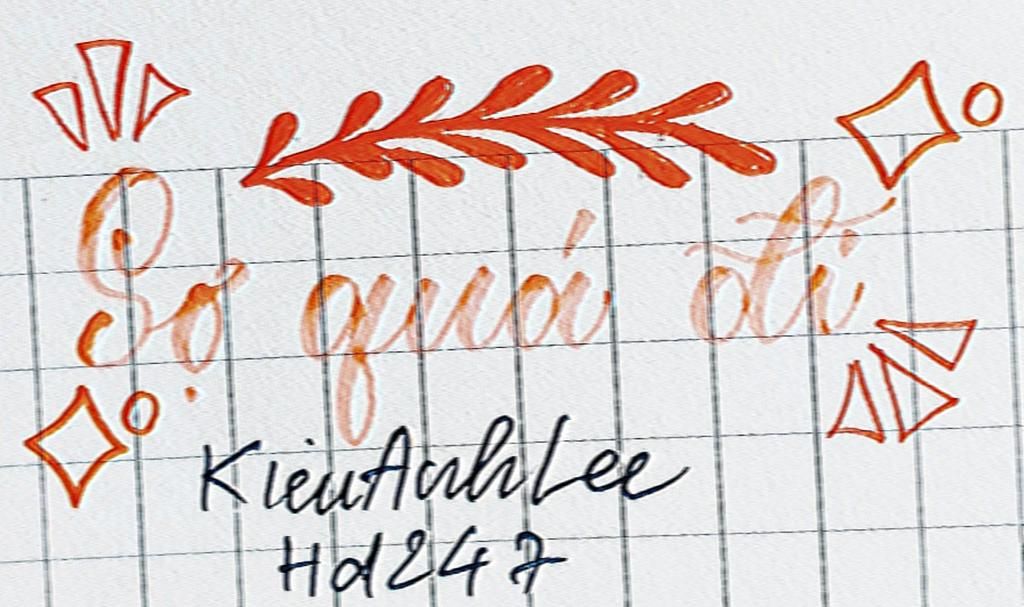 Sợ quá đi
KieuAnhLee
Hd247